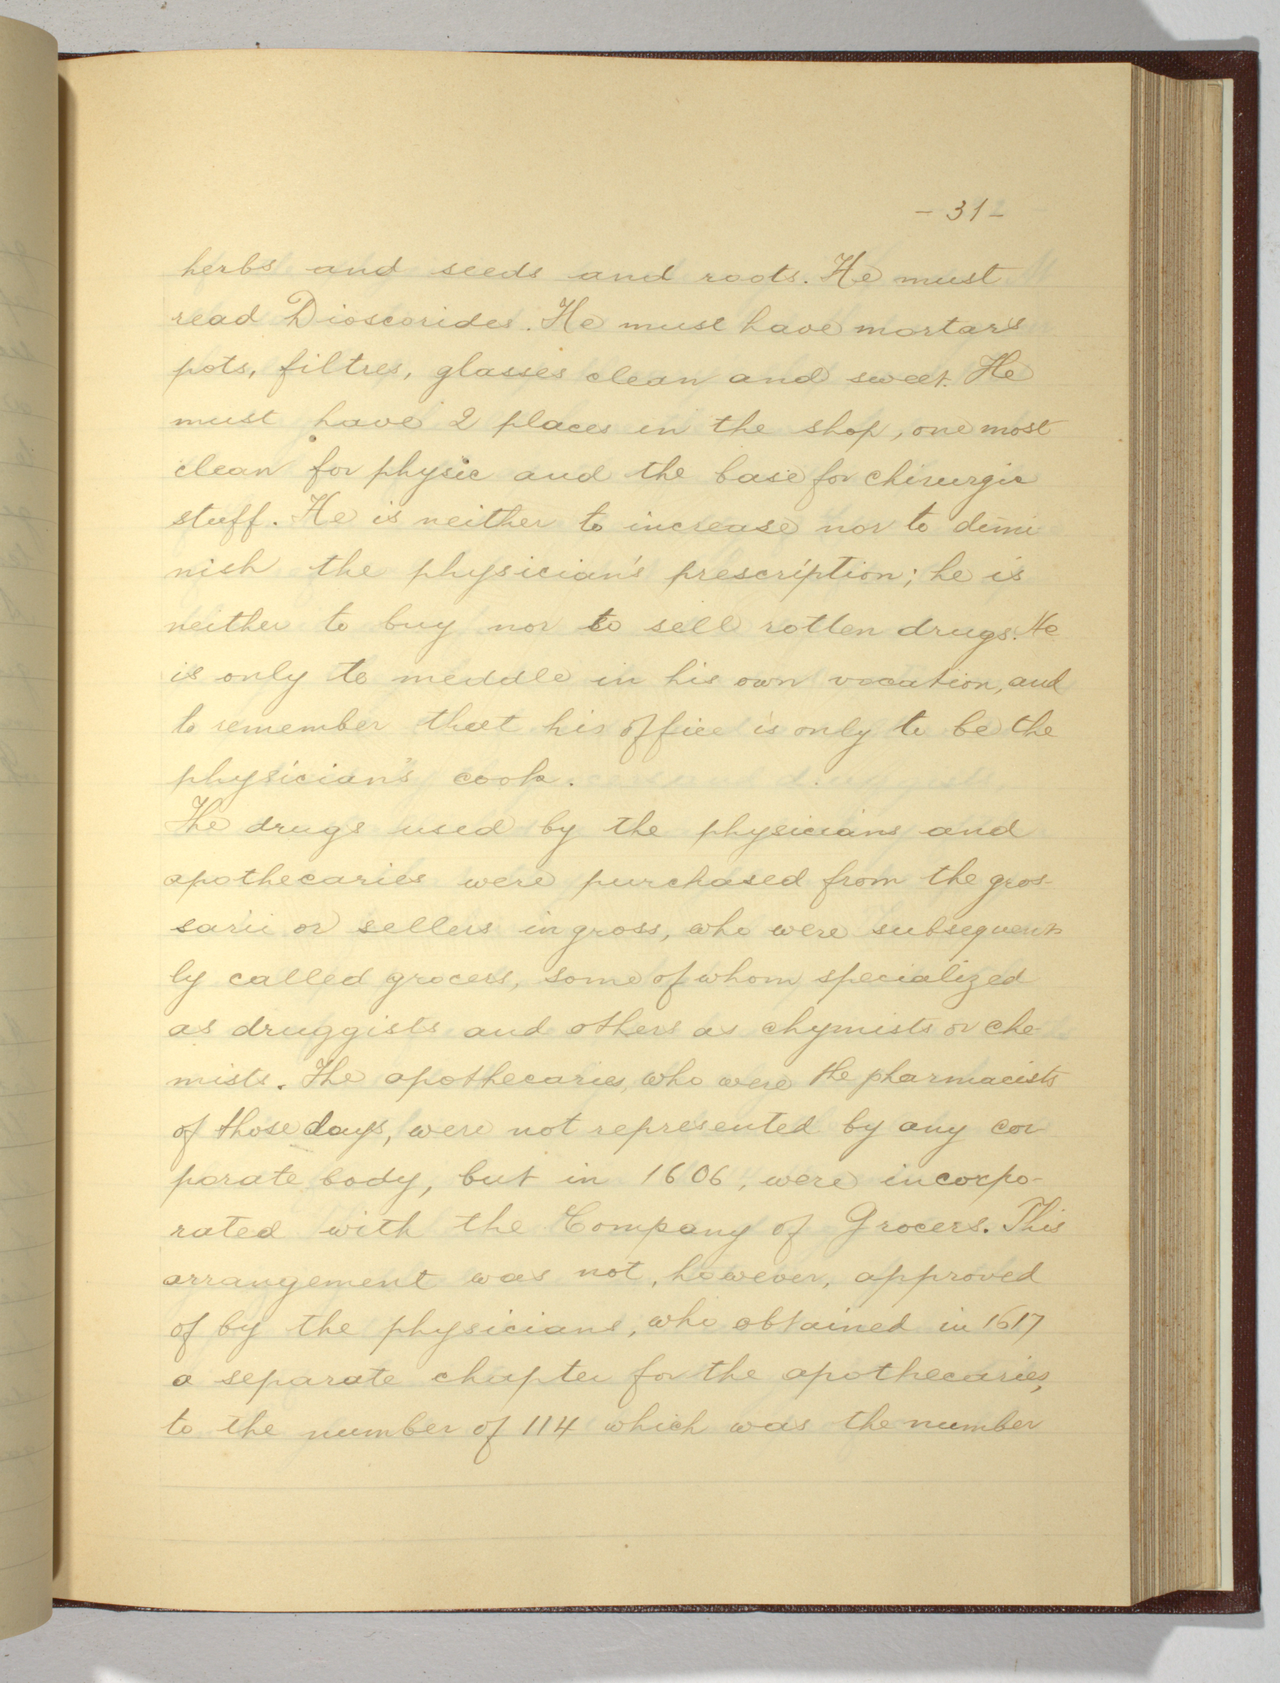 - 31 -
herbs and seeds and roots. He must
read Dioscorides. He must have mortars
pots, filtres, glasses clean and sweet. He
must have 2 places in the shop, one most
clean for physic and the base for chirurgic
stuff. He is neither to increase nor to dimi
nish the physician's prescription; he is
neither to buy nor to sell rotten drugs. He
is only to meddle in his own vocation, and
to remember that his office is only to be the
physician's cook.
The drugs used by the physicians and
apothecaries were purchased from the gros-
sarii or sellers in gross, who were subsequent-
ly called grocers, some of whom specialized
as druggists and others as chymists or che-
mists. The apothecaries, who were the pharmacists
of those days, were not represented by any cor
porate body, but in 1606, were incorpo-
rated with the Company of Grocers. This
arrangement was not, however, approved
of by the physicians, who obtained in 1617
a separate chapter for the apothecaries,
to the number of 114 which was the number